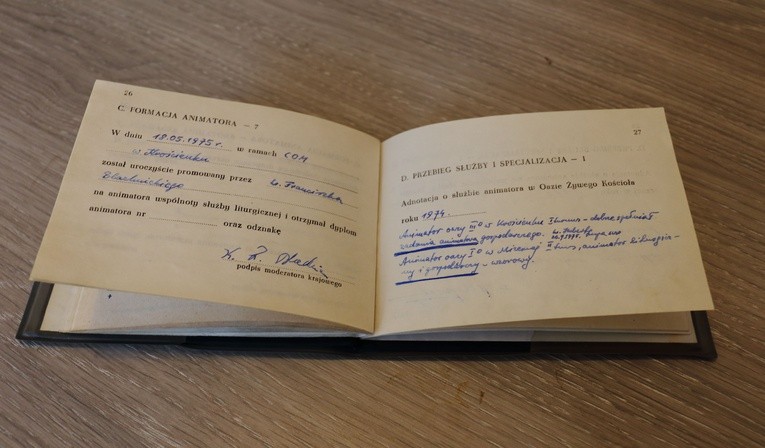 26
C. FORMACJA ANIMATORA – 7
W dniu 18.05.1975 r. w ramach COM
w Krościenku
został uroczyście promowany przez ks. Franciszka
Blachnickiego
na animatora wspólnoty służby liturgicznej i otrzymał dyplom
animatora nr oraz odznakę
podpis moderatora krajowego
27
D. PRZEBIEG SŁUŻBY I SPECJALIZACJA – 1
Adnotacja o służbie animatora w Oazie Żywego Kościoła
roku 1974.
Animator oazy III° w Krościenku I turnus – dobrze spełniał
zadania animatora gospodarczego.
Animator oazy I° w II turnus, animator liturgicz-
ny i gospodarczy – wzorowy.